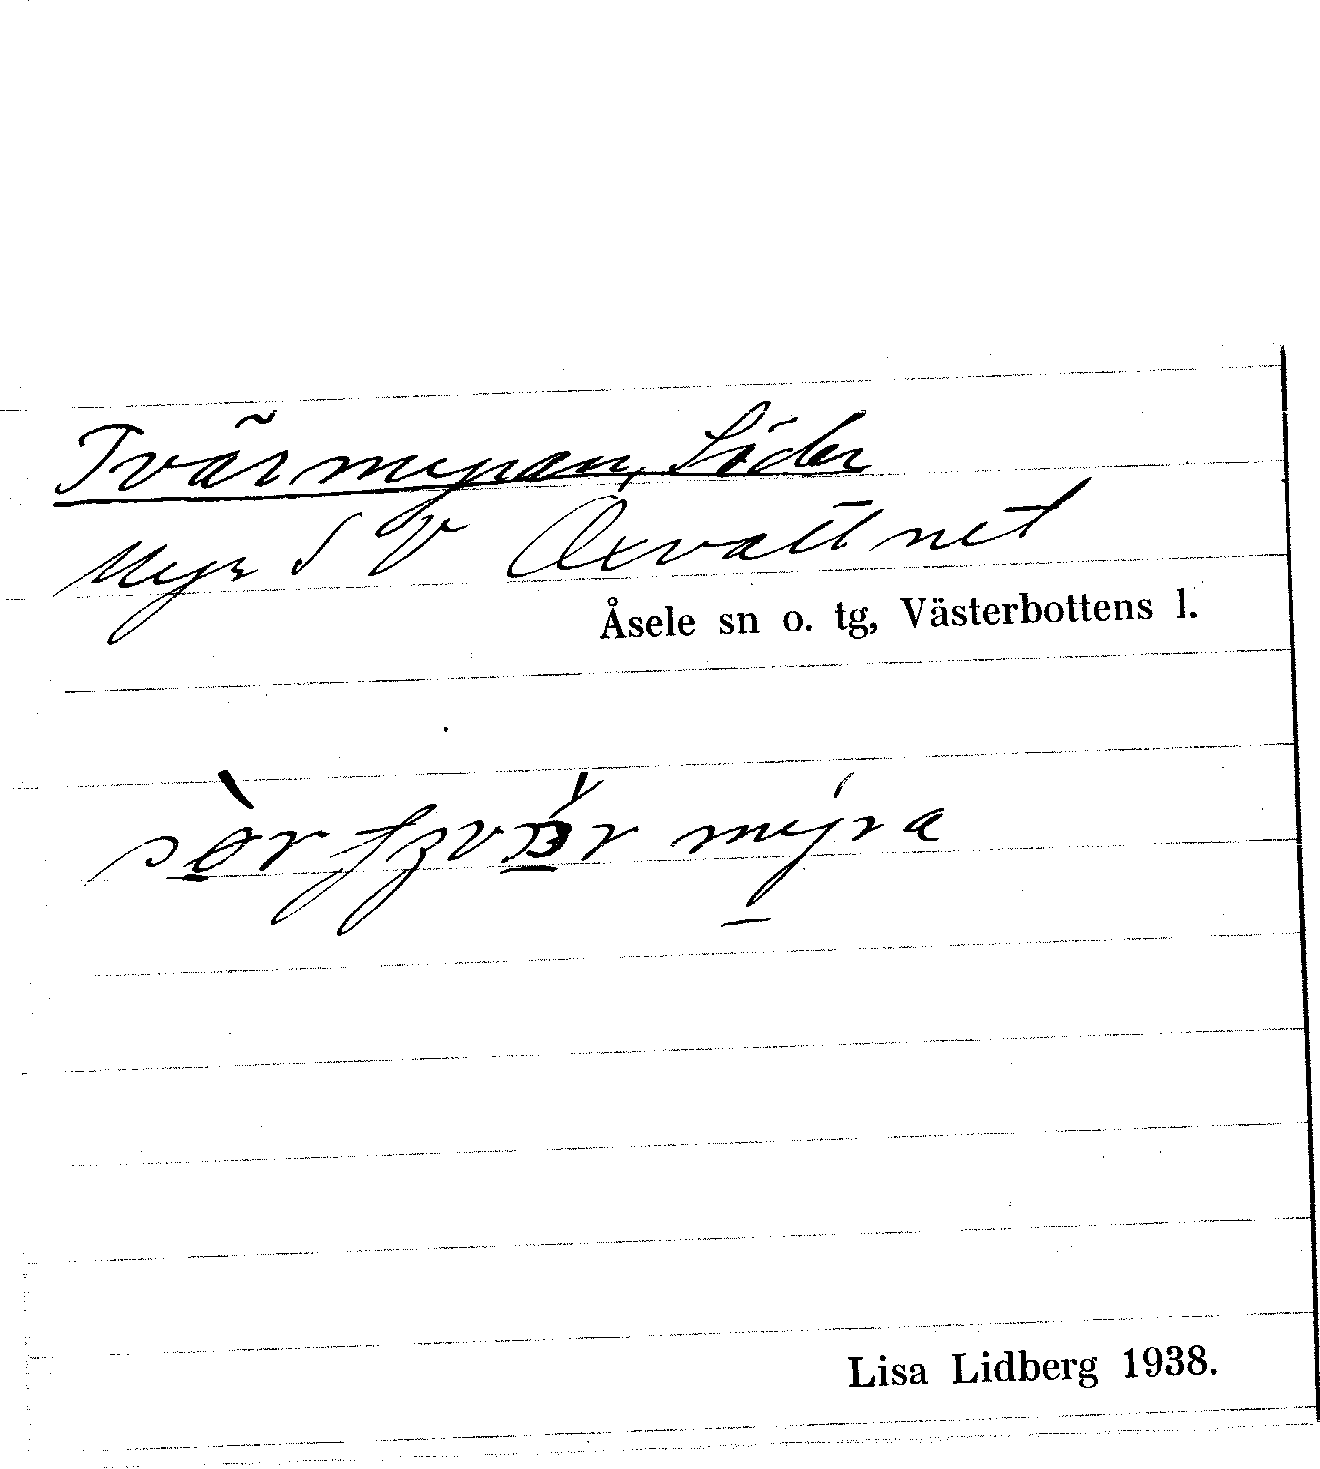 Tvärmyran, Söder
Myr S V Oxvattnet
Åsele sn o. tg, Västerbottens l.
Lisa Lidberg 1938.